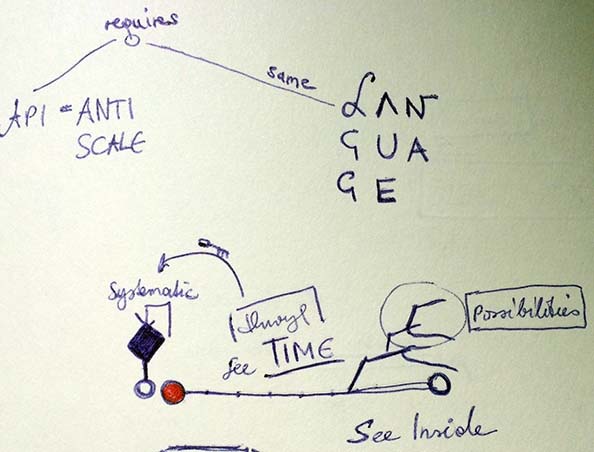 requires
same
API = ANTI
SCALE
LAN
GUA
GE
Systematic
See TIME
Possibilities
See Inside